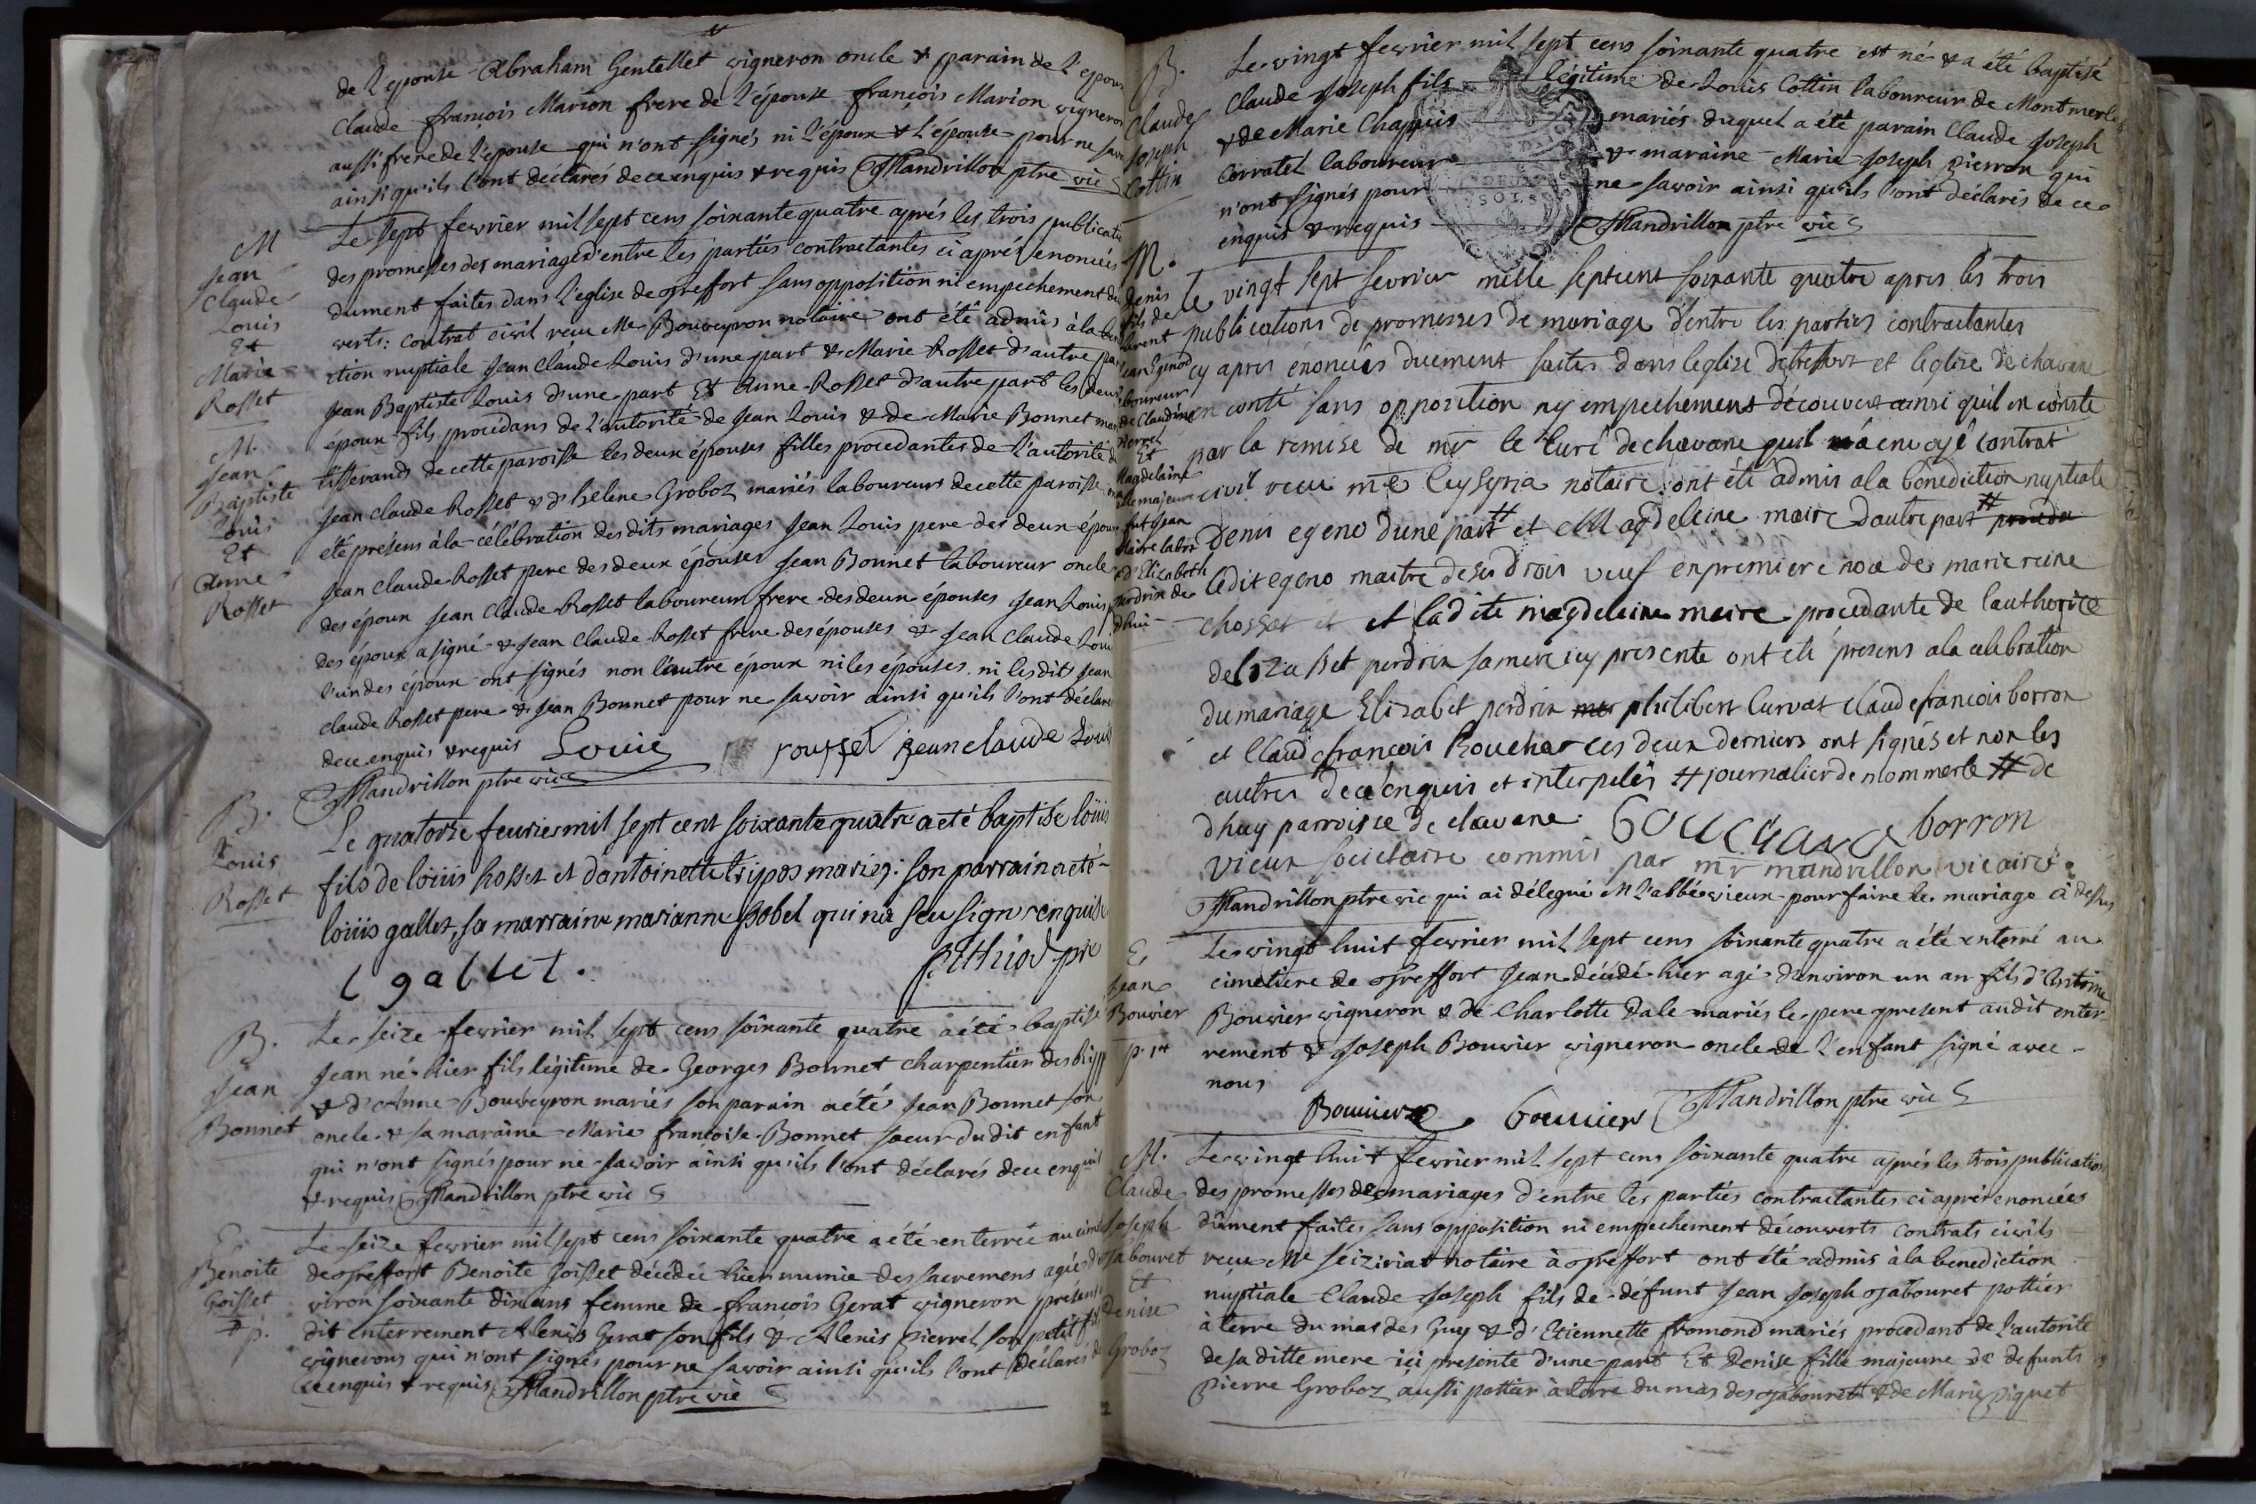 de l'epouse Abraham Gentellet vigneron oncle & parain de l'epoux
Claude françois Marion frere de l'épouse françois Marion vigneron
aussi frere de l'épouse qui n'ont signés ni l'époux & l'épouse pour ne savoir
ainsi qu'ils l'ont déclarés de ce enquis & requis Mandrillon ptre vic
M
Jean
Claude
Louis
Et
Marie
Rosset
Le sept fevrier mil sept cens soixante quatre aprés les trois publicati
des promesses des mariages d'entre les parties contractantes ci aprés enoncées
dument faites dans l'eglise de treffort sans opposition ni empechement dé
verts: contrat civil reçu Me Bouveyron notaire ont été admis à la bé
diction nuptiale Jean Claude Louis d'une part & Marie Rosset d'autre part
Jean Baptiste Louis d'une part Et Anne Rosset d'autre part les deux
époux fils procedans de l'autorité de Jean Louis & de Marie Bonnet mar
tisserands de cette paroisse les deux épouses filles procedantes de l'autorité de
Jean Claude Rosset & d'helene Groboz mariés laboureurs de cette paroisse
été présens à la célébration des dits mariages Jean Louis pere des deux époux
Jean Claude Rosset pere des deux épouses Jean Bonnet laboureur oncle
des époux Jean Claude Rosset laboureur frere des deux épouses Jean Louis
des époux a signé & Jean Claude Rosset frere des épouses & Jean Claude Louis
l'un des époux ont signés non l'autre époux ni les épouses ni les dits Jean
Claude Rosset pere & Jean Bonnet pour ne savoir ainsi qu'ils l'ont déclaré
de ce enquis & requis Louis rousset jean claude Louis
Mandrillon ptre vic
M.
Jean
Baptiste
Louis
Et
Anne
Rosset
B.
Louis
Rosset
Le quatorse feurier mil sept cent soixante quatre a eté baptisé loüis
fils de loüis Rosset et dantoinette tripos mariez: son parrain a eté
loüis gallet, sa marraine marianne Sobel qui n'a sceu signer enquise
l gallet. pre
B.
Jean
Bonnet
Le seize fevrier mil sept cens soixante quatre a été baptisé
Jean né hier fils légitime de Georges Bonnet charpentier des
& d'Anne Bouveyron mariés son parain a été Jean Bonnet son
oncle & sa maraine Marie françoise Bonnet soeur du dit enfant
qui n'ont signés pour ne savoir ainsi qu'ils l'ont déclarés de ce enquis
& requis Mandrillon ptre vic
E.
Benoite
Goisset
p.
Le seize fevrier mil sept cens soixante quatre a été enterrée au cim
de treffort Benoite Goisset décédée hier munie des sacremens agée d'en
viron soixante dix ans femme de françois Gerat vigneron présens
dit enterrement Alexis Gerat son fils & Alexis Pierrel son petit fils
vignerons qui n'ont signés pour ne savoir ainsi qu'ils l'ont déclarés de
ce enquis & requis Mandrillon ptre vic
B.
Claude
Joseph
Cottin
Le vingt fevrier mil sept cens soixante quatre est né & a été baptisé
Claude Joseph fils légitime de Louis Cottin laboureur de Montmerle
& de Marie Chappuis mariés duquel a été parain Claude Joseph
Corratel laboureur & maraine Marie Joseph Pierron qui
n'ont signés pour ne savoir ainsi qu'ils l'ont déclarés de ce
enquis & requis Mandrillon ptre vic
M.
Denis
fils de
laurent
jean
laboureur
de Claudine
Et
Magdelaine
fille majeure
fut jean
maire labor
& d'Elizabeth
perdrix de
dhui
le vingt sept fevrier mille septcent soixante quatre apres les trois
publications de promesses de mariage d'entre les parties contractantes
cy apres énoncées duement faites dans leglise de treffort et leglise de chavane
en conté sans opposition ny empechement découvert ainsi quil en conste
par la remise de mr le Curé de chavane quil m'a envoyé contrat
civil recu me Cuysyria notaire: ont été admis a la bénédiction nuptiale
Denis egeno dune part # et Magdeleine maire dautre part # proceda
ledit egeno maitre de ses drois veuf en premiere noce de marie reine
chosset et et ladite magdeleine maire procedante de lautherité
delizabet perdrix sa mere icy presente ont été présens ala celebration
du mariage Elizabet perdrix philibert Curvat Claude francois borron
et Claude francois Bouchar ces deux derniers ont signés et non les
autres de ce enquis et interpelés # journalier de mommerle # de
dhuy parroisse de chavane. bouchard borron
vieux societaire commis par mr mandrillon vicaire.
Mandrillon ptre vic qui ai délegué Mr l'abbé vieux pour faire le mariage ci dessus
E.
Jean
Bouvier
p. 1er
Le vingt huit fevrier mil sept cens soixante quatre a été enterré au
cimetiere de treffort Jean décédé hier agé d'environ un an fils d'Antoine
Bouvier vigneron & de Charlotte Dale mariés le pere present audit enter
rement & Joseph Bouvier vigneron oncle de l'enfant signé avec
nous
Bouvier bouvier Mandrillon ptre vic
M.
Claude
Joseph
Jabouret
Et
Denise
Groboz
Le vingt huit fevrier mil sept cens soixante quatre aprés les trois publications
des promesses de mariages d'entre les parties contractantes ci aprés enoncées
dûment faites sans opposition ni empechement découverts contrats civils
reçu Me Seiziriat notaire à treffort ont été admis à la benediction
nuptiale Claude Joseph fils de défunt Jean Joseph Jabouret pottier
à terre du mas des Guy & d'Etiennette fromond mariés procedant de l'autorité
de sa ditte mere ici presente d'une part Et Denise fille majeure de defunts
Pierre Groboz aussi pottier à terre du mas des Jabouret & de Marie Piquet